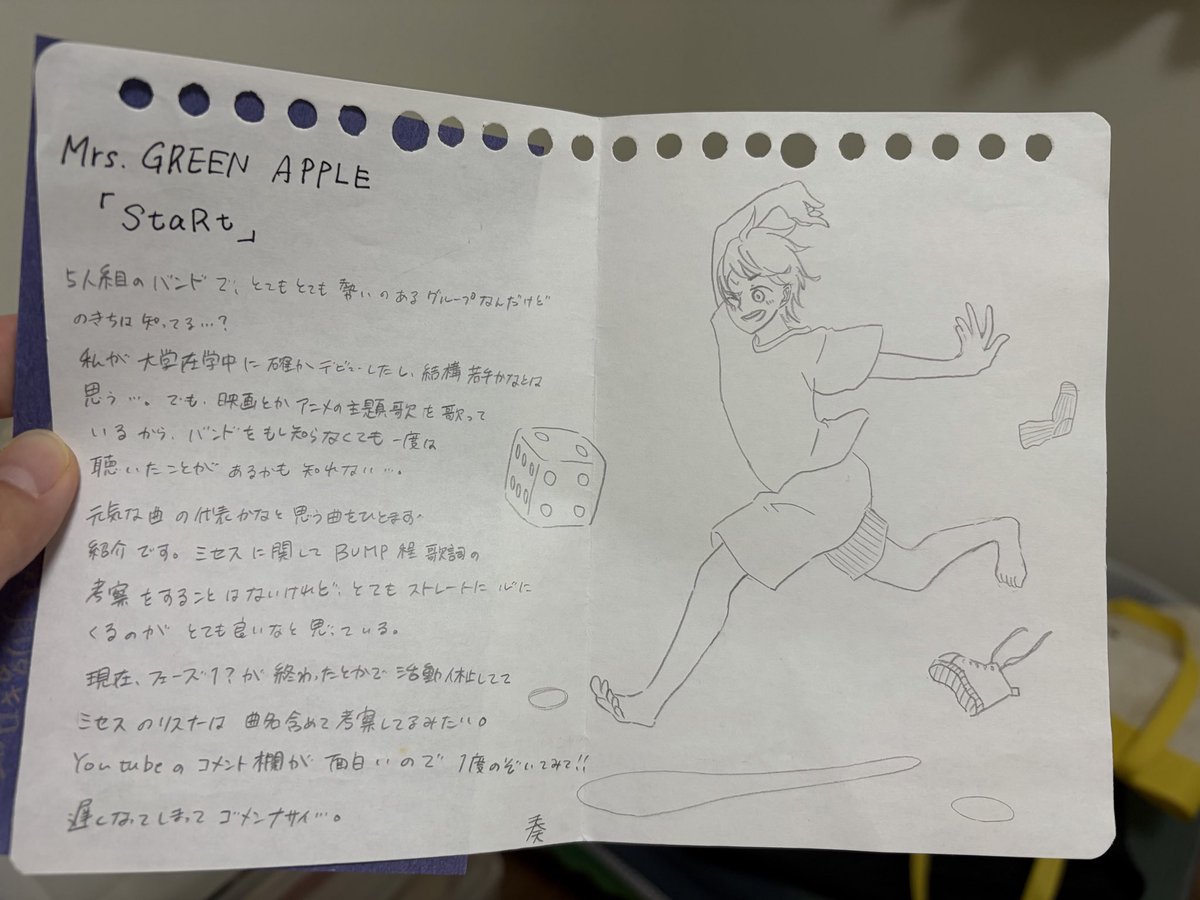 Mrs. GREEN APPLE
「StaRt」
5人組のバンドで、とてもとても勢いのあるグループなんだけど
のきちは知ってる…?
私が大学在学中に確かデビューしたし、結構若手かなとは
思う…。でも、映画とかアニメの主題歌を歌って
いるから、バンドをもし知らなくても一度は
聴いたことがあるかも知れない…。
元気な曲の代表かなと思う曲をひとまず
紹介です。ミセスに関してBUMP程歌詞の
考察をすることはないけれど、とてもストレートに心に
くるのがとても良いなと思っている。
現在、フェーズ1?が終わったとかで活動休止してて
ミセスのリスナーは曲名含めて考察してるみたい。
Youtubeのコメント欄が面白いので1度のぞいてみて!!
遅くなってしまってゴメンナサイ…。
奏